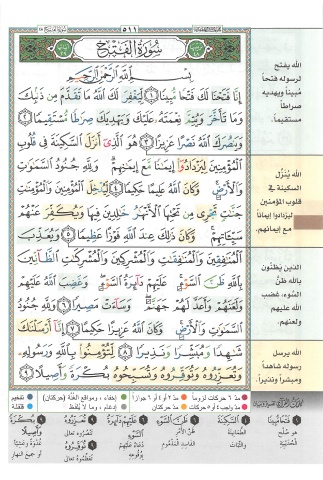 ٥١١
سُورَةُ الفَتْحِ
بِسْمِ اللَّهِ الرَّحْمَٰنِ الرَّحِيمِ
إِنَّا فَتَحْنَا لَكَ فَتْحًا مُّبِينًا ١ لِّيَغْفِرَ لَكَ اللَّهُ مَا تَقَدَّمَ مِن ذَنبِكَ
وَمَا تَأَخَّرَ وَيُتِمَّ نِعْمَتَهُ عَلَيْكَ وَيَهْدِيَكَ صِرَاطًا مُّسْتَقِيمًا ٢
وَيَنصُرَكَ اللَّهُ نَصْرًا عَزِيزًا ٣ هُوَ الَّذِي أَنزَلَ السَّكِينَةَ فِي قُلُوبِ
الْمُؤْمِنِينَ لِيَزْدَادُوا إِيمَانًا مَّعَ إِيمَانِهِمْ وَلِلَّهِ جُنُودُ السَّمَاوَاتِ
وَالْأَرْضِ وَكَانَ اللَّهُ عَلِيمًا حَكِيمًا ٤ لِّيُدْخِلَ الْمُؤْمِنِينَ وَالْمُؤْمِنَاتِ
جَنَّاتٍ تَجْرِي مِن تَحْتِهَا الْأَنْهَارُ خَالِدِينَ فِيهَا وَيُكَفِّرَ عَنْهُمْ
سَيِّئَاتِهِمْ وَكَانَ ذَلِكَ عِندَ اللَّهِ فَوْزًا عَظِيمًا ٥ وَيُعَذِّبَ
الْمُنَافِقِينَ وَالْمُنَافِقَاتِ وَالْمُشْرِكِينَ وَالْمُشْرِكَاتِ الظَّانِّينَ
بِاللَّهِ ظَنَّ السَّوْءِ عَلَيْهِمْ دَائِرَةُ السَّوْءِ وَغَضِبَ اللَّهُ عَلَيْهِمْ
وَلَعَنَهُمْ وَأَعَدَّ لَهُمْ جَهَنَّمَ وَسَاءَتْ مَصِيرًا ٦ وَلِلَّهِ جُنُودُ
السَّمَاوَاتِ وَالْأَرْضِ وَكَانَ اللَّهُ عَزِيزًا حَكِيمًا ٧ إِنَّا أَرْسَلْنَاكَ
شَاهِدًا وَمُبَشِّرًا وَنَذِيرًا ٨ لِّتُؤْمِنُوا بِاللَّهِ وَرَسُولِهِ
وَتُعَزِّرُوهُ وَتُوَقِّرُوهُ وَتُسَبِّحُوهُ بُكْرَةً وَأَصِيلًا ٩
الله يفتح
لرسوله فتحاً
مُبيناً ويهديه
صراطاً
مستقيماً.
الله يُنْزِّل
السكينة في
قلوب المؤمنين
ليزدادوا إيماناً
مع إيمانهم.
الذين يظنّون
بالله ظنّ
السّوء، غضب
الله عليهم
ولعنهم.
الله يرسل
رسوله شاهداً
ومبشراً ونذيراً.
مدّ ٦ حركات لزوماً
مدّ ٢ أو ٤ أو ٦ جوازاً
إخفاء، ومواقع الغُنَّة (حركتان)
تفخيم
مدّ حركتان
إدغام، وما لا يُلفظ
قلقلة